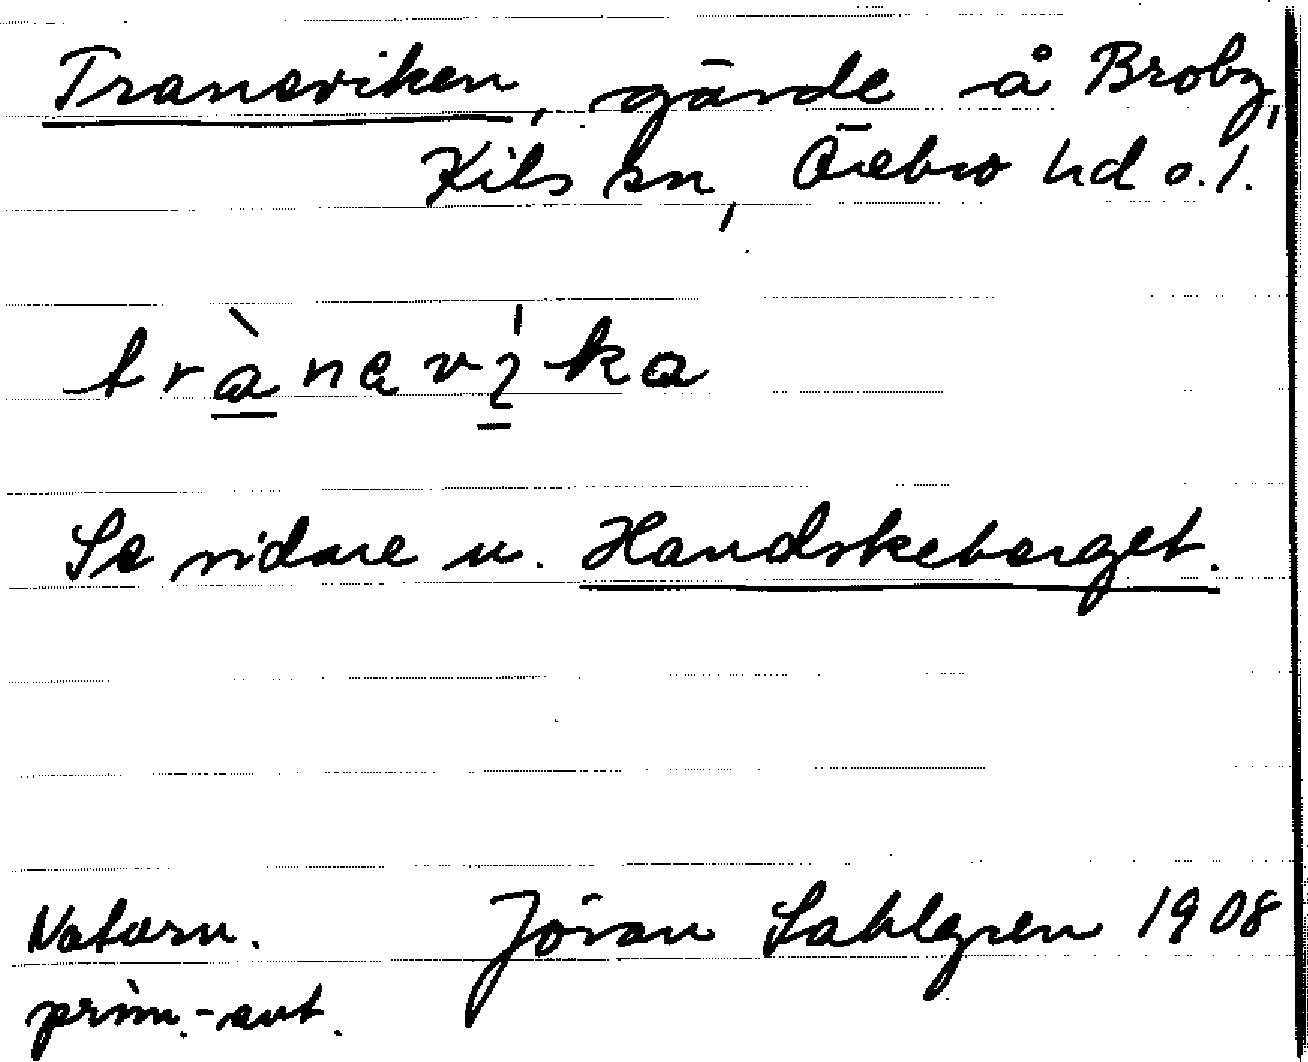 Traneviken, gärde å Broby,
Kils sn, Örebro hd o. l.
trànavíka
Se vidare u. Handskeberget.
Naturn.
Jöran Sahlgren 1908
prim.-ant.